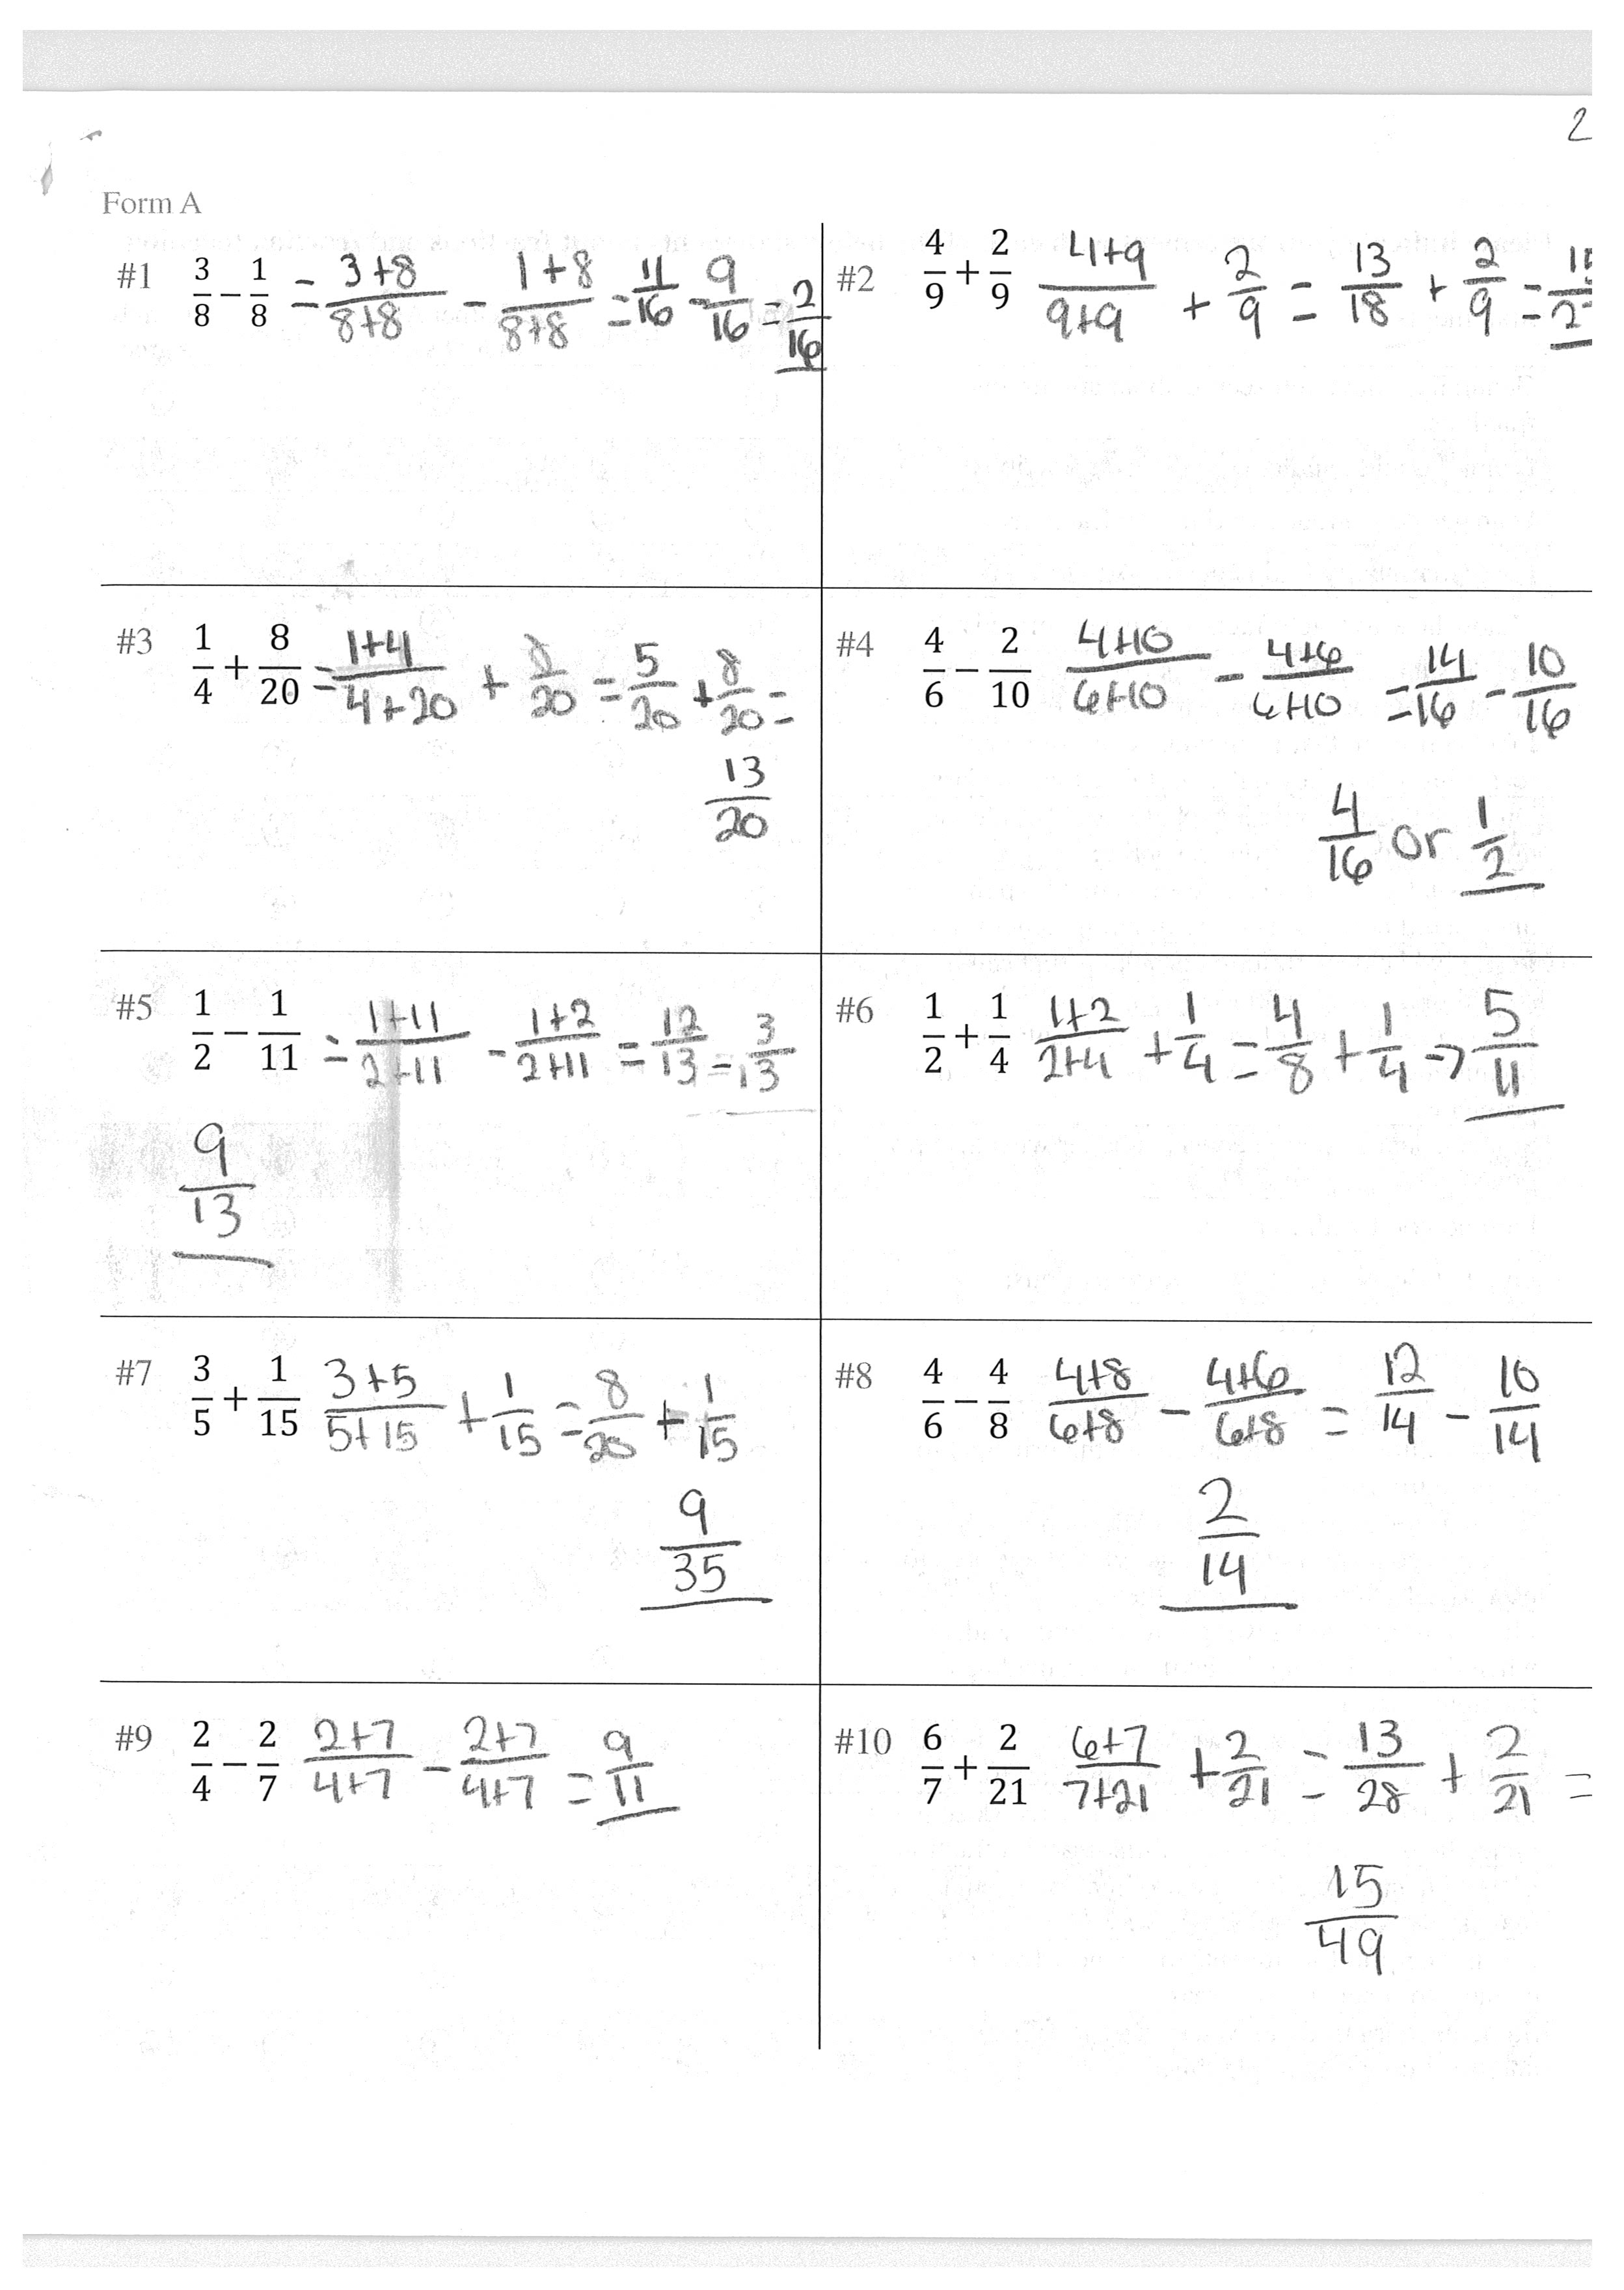 2
Form A
#1 3/8 − 1/8 = 3+8/8+8 − 1+8/8+8 = 11/16 − 9/16 = 2/16
#2 4/9 + 2/9 4+9/9+9 + 2/9 = 13/18 + 2/9 =
#3 1/4 + 8/20 = 1+4/4+20 + 8/20 = 5/20 + 8/20 =
13/20
#4 4/6 − 2/10 4+10/6+10 − 4+6/6+10 = 14/16 − 10/16
4/16 or 1/2
#5 1/2 − 1/11 = 1+11/2+11 − 1+2/2+11 = 12/13 − 3/13
9/13
#6 1/2 + 1/4 1+2/2+4 + 1/4 = 4/8 + 1/4 → 5/11
#7 3/5 + 1/15 3+5/5+15 + 1/15 = 8/20 + 1/15
9/35
#8 4/6 − 4/8 4+8/6+8 − 4+6/6+8 = 12/14 − 10/14
2/14
#9 2/4 − 2/7 2+7/4+7 − 2+7/4+7 = 9/11
#10 6/7 + 2/21 6+7/7+21 + 2/21 = 13/28 + 2/21 =
15/49